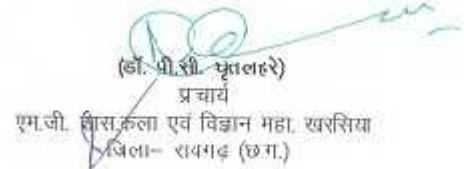 (डॉ. पी.सी. घृतलहरे)
प्रचार्य
एम.जी. शास.कला एवं विज्ञान महा. खरसिया
जिला– रायगढ़ (छ.ग.)